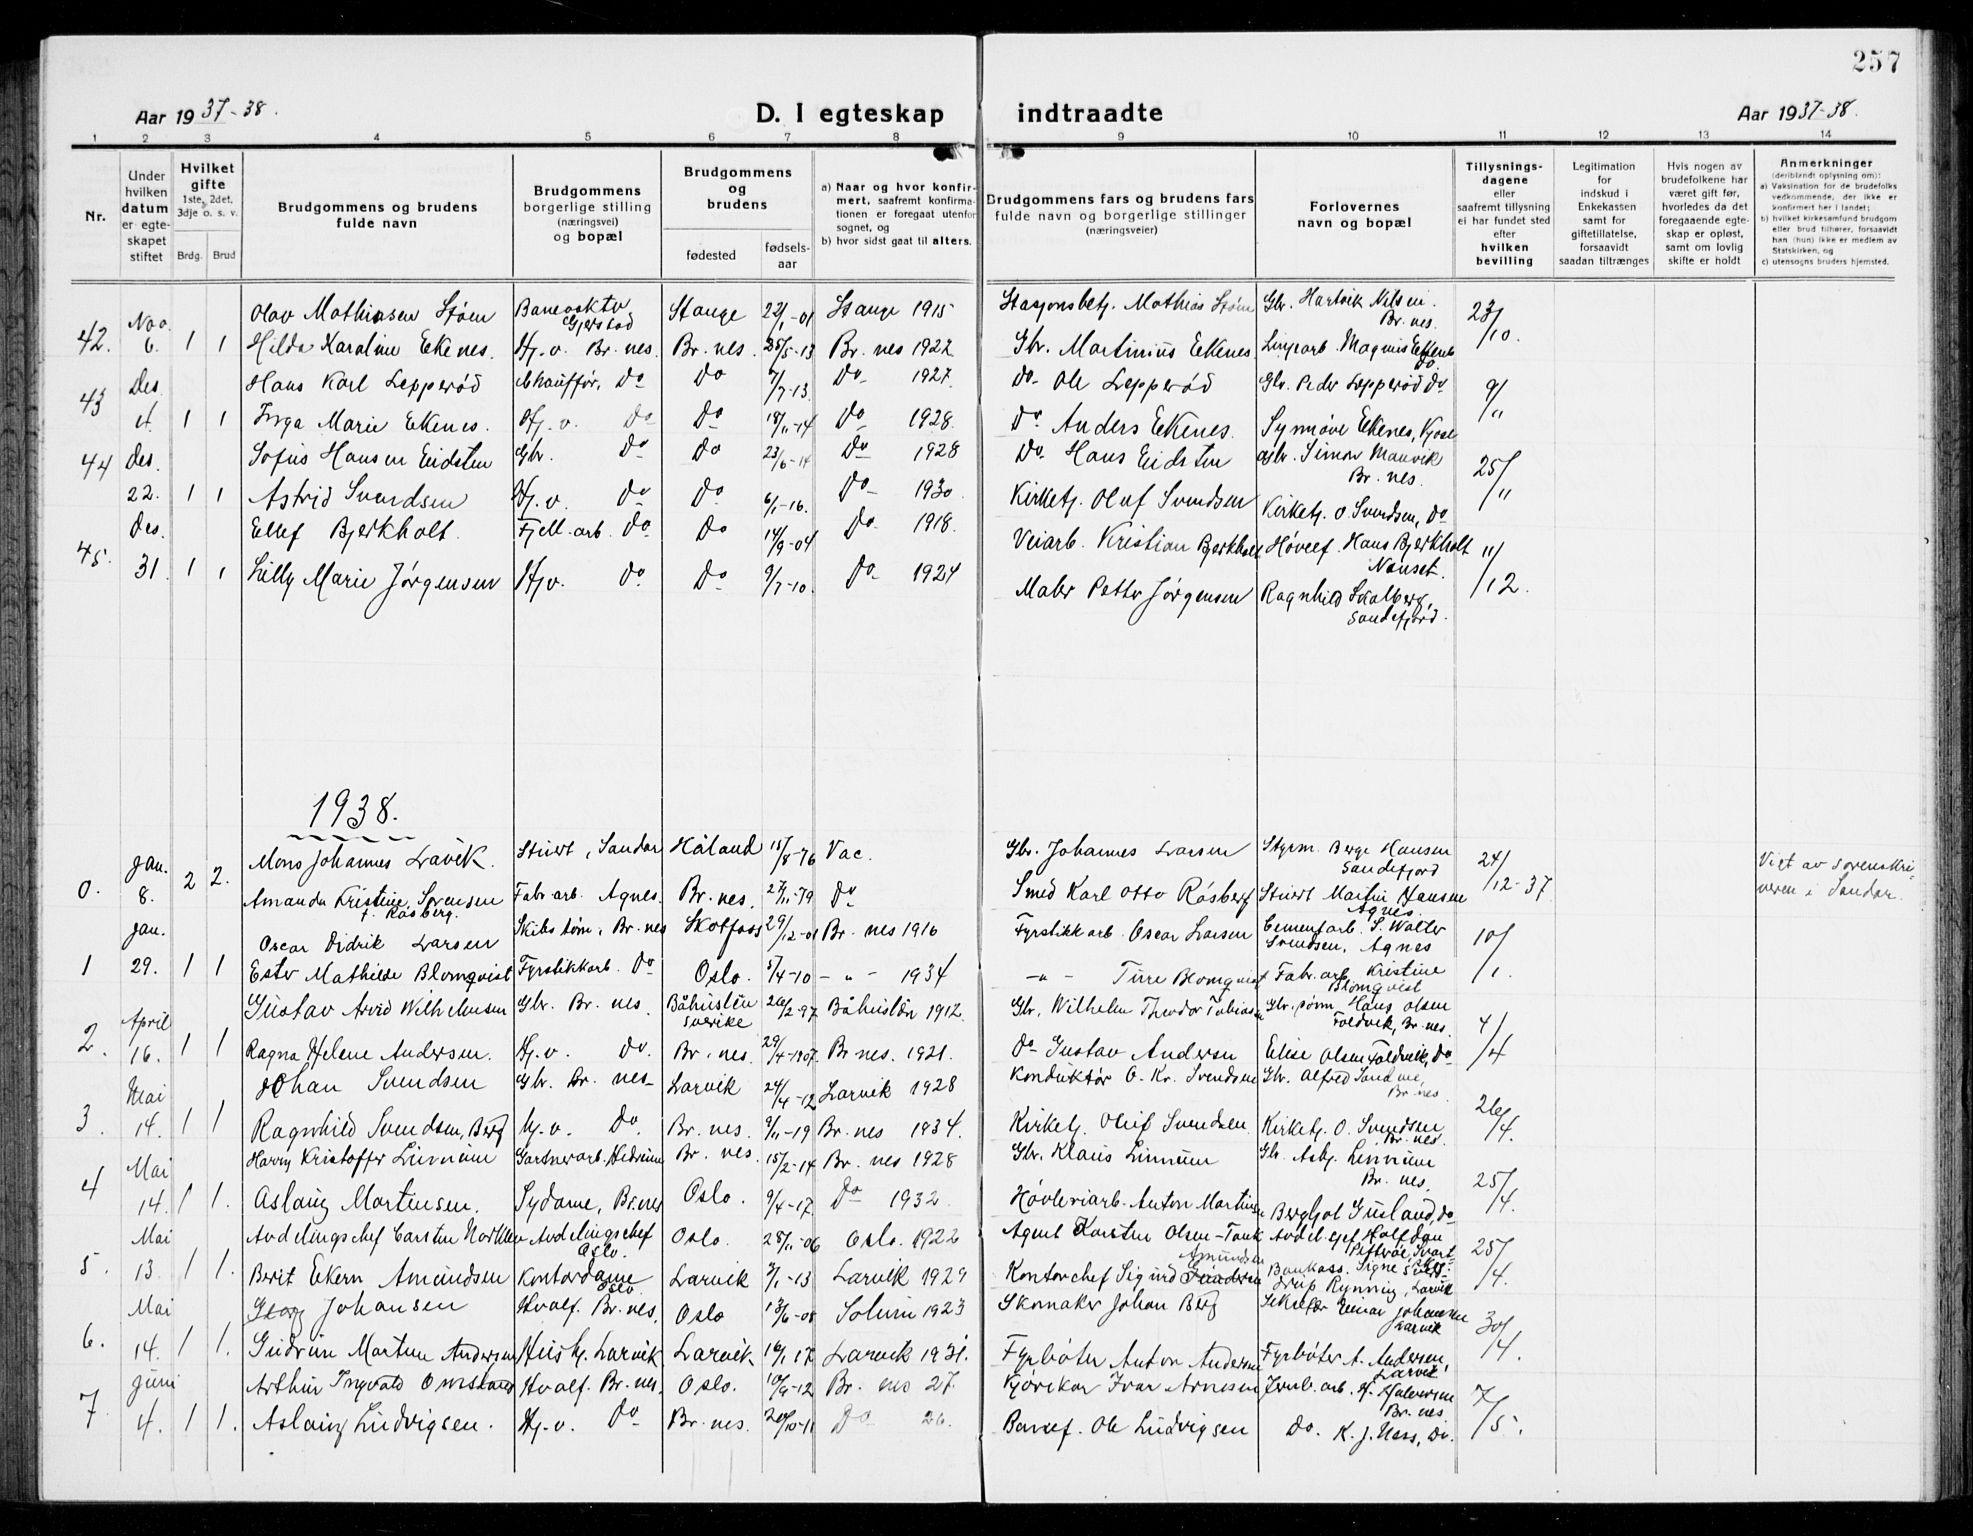 257
Aar 1937-38.
D. I egteskap indtraadte
Aar 1937-38.
1 2 3 4 5 6 7 8 9 10 11 12 13 14
Nr.
Under hvilken datum er egteskapet stiftet
Hvilket gifte 1ste, 2det, 3dje o. s. v.
Brdg. Brud
Brudgommens og brudens fulde navn
Brudgommens borgerlige stilling (næringsvei) og bopæl
Brudgommens og brudens
fødested
fødsels-aar
a) Naar og hvor konfirmert, saafremt konfirmationen er foregaat utenfor sognet, og
b) hvor sidst gaat til alters.
Brudgommens fars og brudens fars fulde navn og borgerlige stillinger (næringsveier)
Forlovernes navn og bopæl
Tillysningsdagene eller saafremt tillysning ei har fundet sted efter hvilken bevilling
Legitimation for indskud i Enkekassen samt for giftetillatelse, forsaavidt saadan tiltrænges
Hvis nogen av brudefolkene har været gift før, hvorledes da det foregaaende egteskap er opløst, samt om lovlig skifte er holdt
Anmerkninger (deriblandt oplysning om):
a) Vaksination for de brudefolks vedkommende, der ikke er konfirmert her i landet;
b) hvilket kirkesamfund brudgom eller brud tilhører, forsaavidt han (hun) ikke er medlem av Statskirken, og
c) utensogns bruders hjemsted.
42. Nov. 6. 1 1 Olav Mathinsen Støen Banevokter Gjerstad Stange 22/1-01 Stange 1915 Stasjonsbetj. Mathias Støen Gbr. Hartvik Nilsen. Br. nes. 23/10.
Hilda Karoline Eekenes. Hj. v. Br. nes. Br. nes. 25/5-13 Br. nes 1927 Gbr. Martinius Eekenes Linjearb. Magnus Eekenes Do
43 Des. 4. 1 1 Hans Karl Lepperød Chauffør, Do Do 7/7-13 Do 1927. Do Ole Lepperød Gbr. Peder Lepperød Do 9/11
Inga Marie Eekenes. Hj. v. Do Do 18/11-14 Do 1928. Do Anders Eekenes. Synnøve Eekenes, Kjose
44 Des. 22. 1 1 Sofus Hansen Eidsten Gbr. Do Do 23/6-14 Do 1928 Do. Hans Eidsten Gbr. Simon Manvik Br. nes. 25/11
Astrid Svendsen Hj. v. Do Do 6/1-16. Do 1930 Kirketj. Oluf Svendsen Kirketj. O Svendsen, Do
45. Des. 31. 1 1 Ellef Bjerkholt. Fjell-arb. Do Do 14/9-04 Do 1918. Veiarb. Kristian Bjerkholt Høvlef. Hans Bjerkholt Nanset. 11/12.
Lilly Marie Jørgensen Hj. v. Do Do 9/7-10. Do 1924 Maler Petter Jørgensen Ragnhild Skalberg, Sandefjord.
1938.
0. Jan. 8. 2 2. Mons Johannes Lavik. Stuert, Sandar Håland 15/8-76 Vac. Gbr. Johannes Larsen Styrm. Berge Hansen Sandefjord 24/12-37 Viet av sorenskriveren i Sandar.
Amanda Kristine Sørensen f. Råsberg. Fabr-arb. Agnes. Br. nes. 27/11-79 Do Smed Karl Otto Råsberg Stuert Martin Hansen Agnes.
1 Jan. 29. 1 1 Oscar Didrik Larsen Skibstøm. Br. nes Skotfoss 29/12-01 Br. nes 1916 Fyrstikkarb. Oscar Larsen Cementarb. S. Walter Svendsen, Agnes 10/1.
Ester Mathilde Blomqvist Fyrstikkarb. Do Oslo. 5/4-10 - " - 1934 - " - Ture Blomqvist Fabr. arb. Kristine Blomqvist
2. April 16. 1 1 Gustav Arvid Wilhelmsen Gbr. Br. nes. Båhuslän Sverike 26/2-97 Båhuslän 1912. Gbr. Wilhelm Theodor Tobiasen Gbr. sønn Hans Olsen Foldvik, Br. nes. 4/4
Ragna Helene Andersen. Hj. v. Do. Br. nes. 29/4-1907. Br. nes. 1921. Do Gustav Andersen Elise Olsen Foldvik, Do
3. Mai 14. 1 1 Johan Svendsen Gbr. Br. nes Larvik 24/4-12 Larvik 1928 Konduktør O. Kr. Svendsen Gbr. Alfred Br. nes. 26/4.
Ragnhild Svendsen, Berg hj. v. Do. Br. nes. 9/11-19 Br. nes 1934. Kirketj. Oluf Svendsen Kirketj. O. Svendsen Br. nes.
4 Mai 14. 1 1. Harry Kristoffer Linnum Gartnerarb. Hedrum Br. nes. 15/2-14 Br. nes 1928 Gbr. Klaus Linnum Gbr. Asbj. Linnum Br. nes. 25/4.
Aslaug Martinsen. Sydame, Br. nes Oslo. 9/4-17. Do 1932 Høvleriarb. Anton Martinsen Bergljot Gusland, Do
5. Mai 13. 1 1. Avdelingschef Carsten Avdelingschef Oslo. Oslo. 28/11-06 Oslo. 1922 Agent Karsten Olsen-Tank Avdel. sjef Halfdan 25/4.
Berit Eekern Amundsen Kontordame Oslo Larvik 3/1-13 Larvik 1929 Kontorchef Sigurd Amundsen Bankass. Signe Rynning, Larvik
6. Mai 14. 1 1. Georg Johansen Hvalf. Br. nes. Oslo 13/6-08 Solum 1923 Skomaker Johan Berg Sekretær Einar Johansen Larvik 30/4.
Gudrun Martine Andersen Hushj. Larvik Larvik 16/1 17. Larvik 1931. Fyrbøter Anton Andersen Fyrbøter A. Andersen, Larvik
7. Juni 4. 1 1. Arthur Ingvald Omsland Hvalf. Br. nes. Oslo. 10/9-12 Br. nes 27. Kjørekar Ivar Arnesen Jernb. arb. H. Halvorsen Br. nes. 7/5.
Aslaug Ludvigsen. Hj. v. Do Br. nes. 20/10-11 Do 26. Banef. Ole Ludvigsen Do. K. J. Næss, Do.